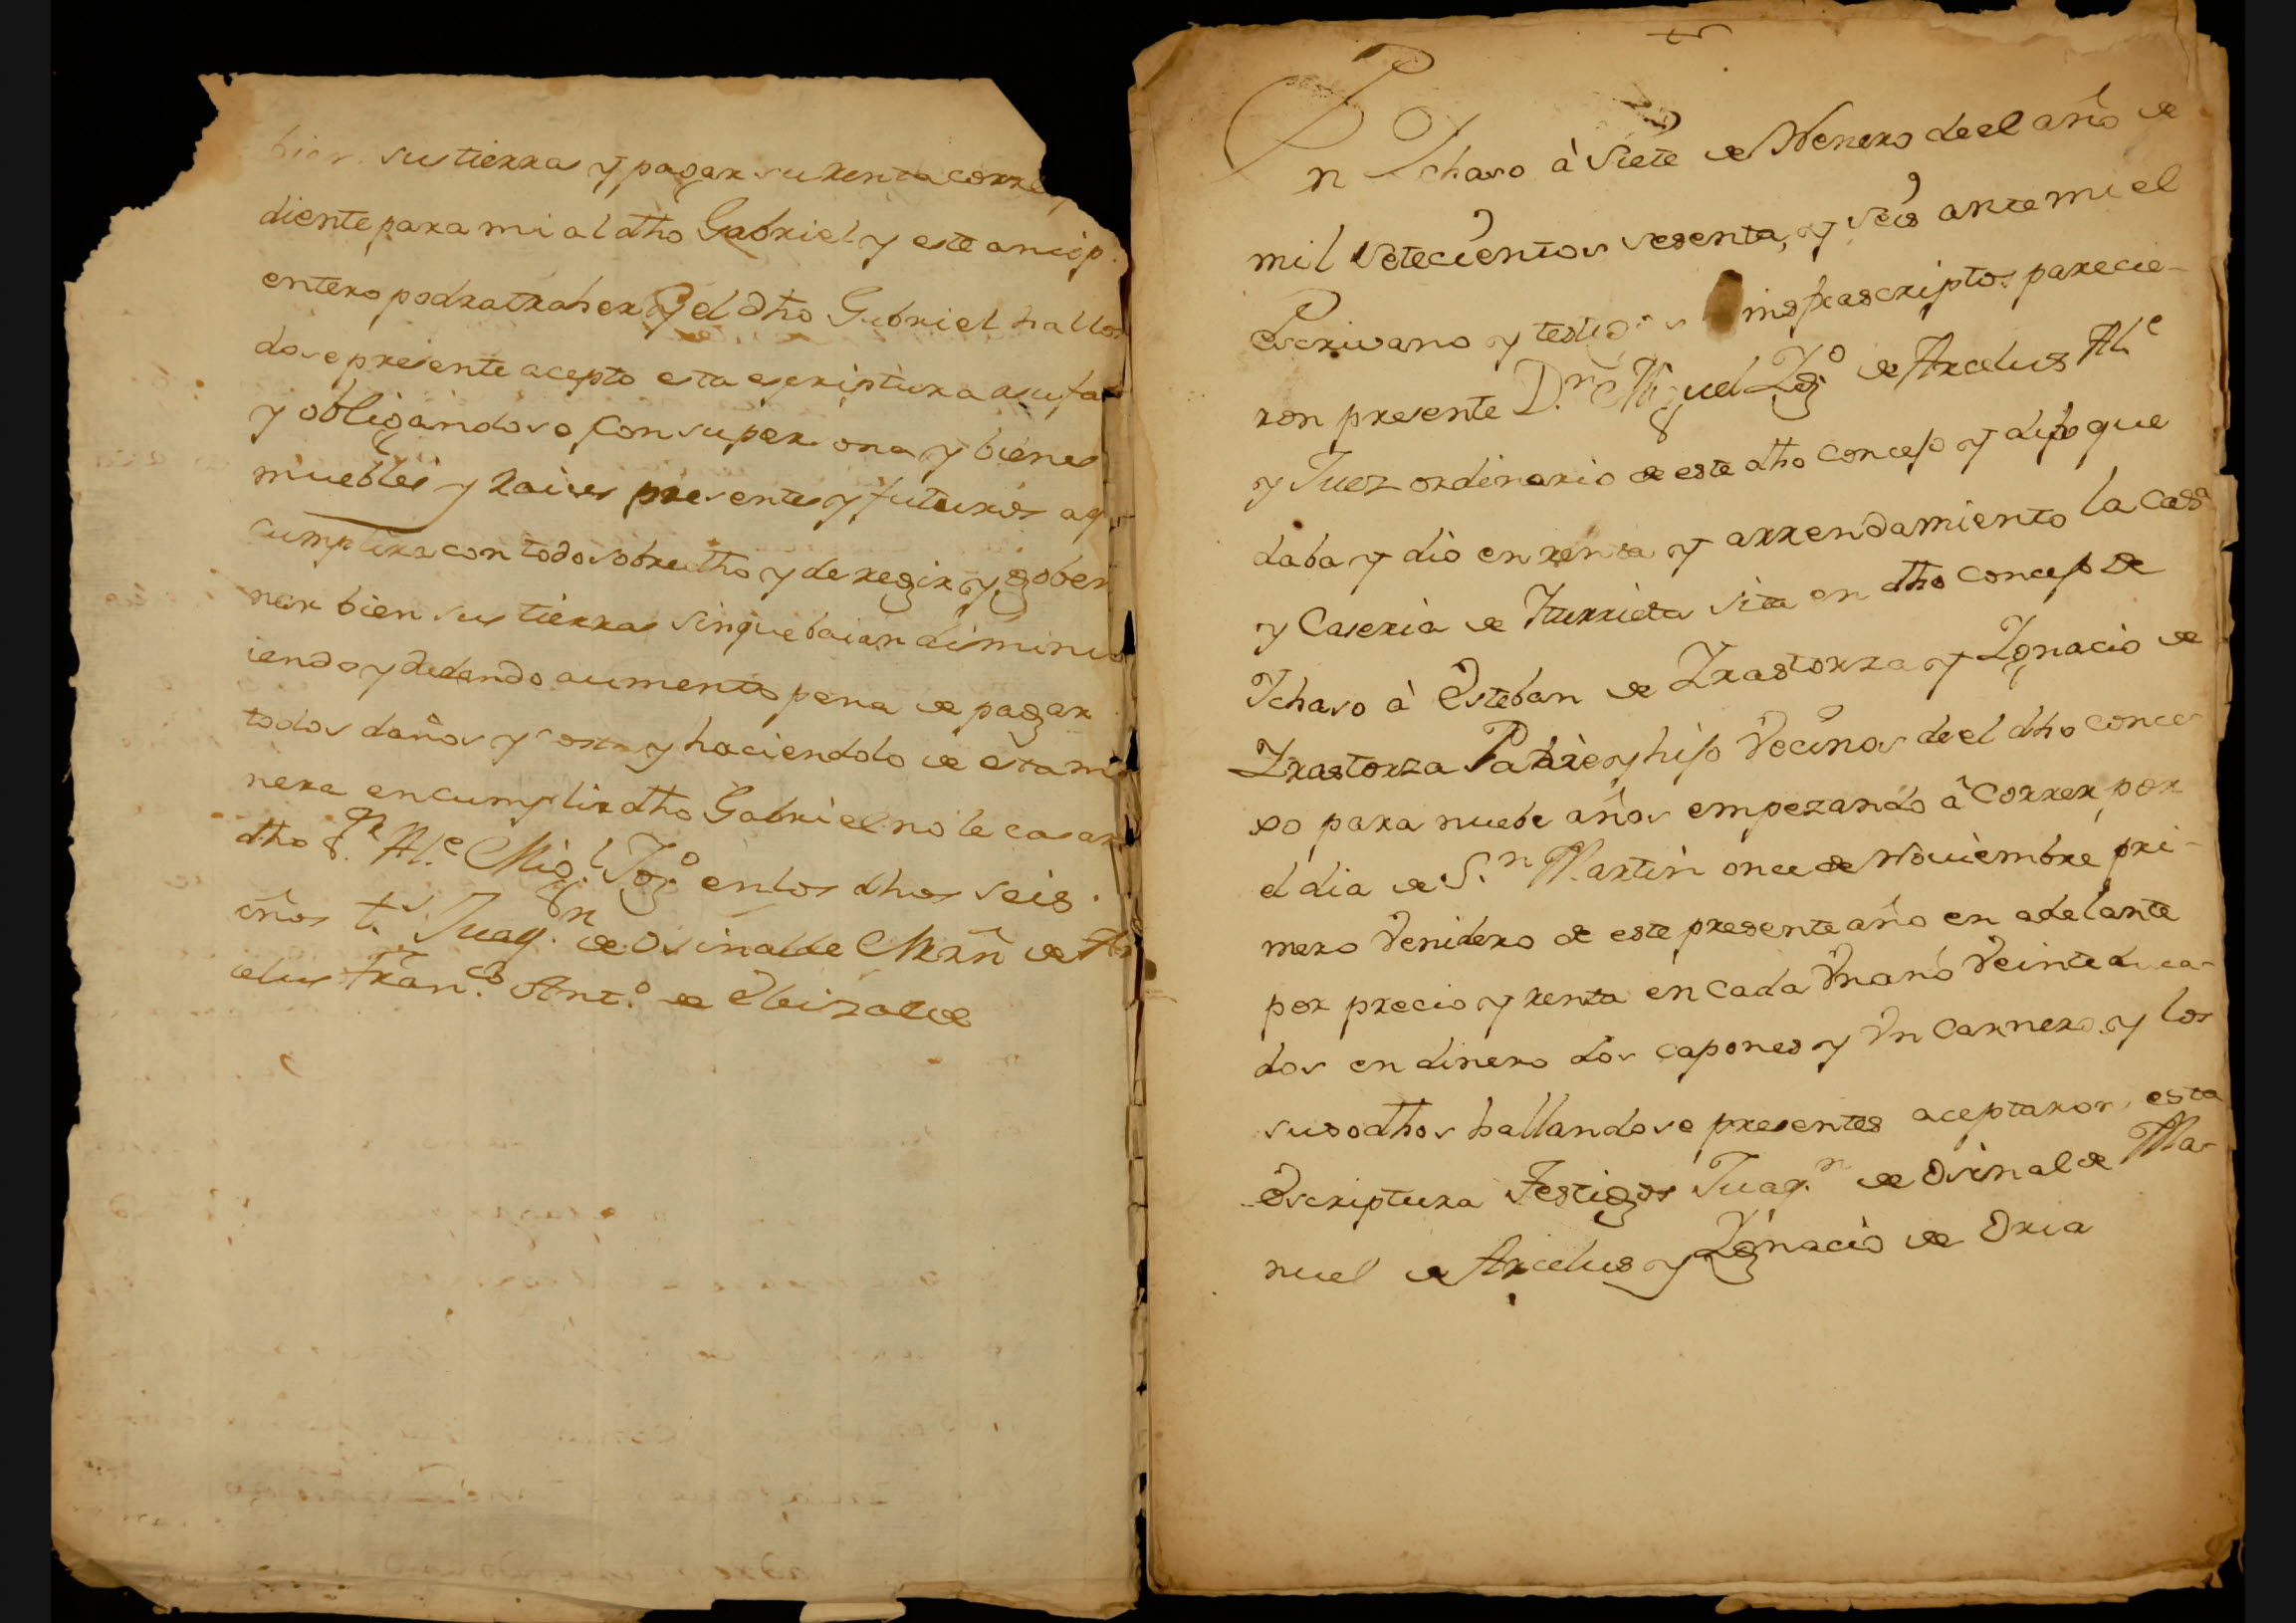 bien sus tierras y pagar su renta corres
diente para mi al dho Gabriel y este
entero podra traher y el dho Gabriel hallan
dose presente acepto esta escriptura a su fa
y obligandose con su persona y bienes
muebles y Raices presentes y futuros aq
cumplira con todo sobredho y de regir y gober
nar bien sus tierras sin que baian diminu
iendo y dedando aumento pena de pagar
todos daños y costas y haciendolo de esta ma
nera en cumplir dho Gabriel no le
dho Sr. Ale. Migl. Igo en los dhos seis
años ts. Juaqn de Osinalde Mañ de Ar
celus Franco Anto de Eleizalde
En Ichaso à Siete de Henero de el año de
mil Setecientos sesenta, y Seis ante mi el
Escrivano y testigos infraescriptos parecie-
ron presente Dn Miguel Igo de Arcelus Ale
y Juez ordinario de este dho concejo y dijo que
daba y diò en renta y arrendamiento la casa
y Caseria de Iturrieta sita en dho concejo de
Ichaso à Esteban de Irastorza y Ignacio de
Irastorza Padre y hijo Vecinos de el dho conce
xo para nuebe años empezando â correr por
el dia de Sn Martin once de Noviembre pri-
mero Venidero de este presente año en adelante
por precio y renta en cada Vn año Veinte duca-
dos en dinero dos capones y Vn Carnero y los
susodhos hallandose presentes aceptaron esta
Escriptura Testigos Juaqn de Osinalde Ma-
nuel de Arcelus y Ignacio de Oria